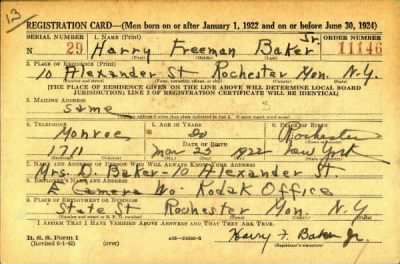 13
REGISTRATION CARD—(Men born on or after January 1, 1922 and on or before June 30, 1924)
SERIAL NUMBER 1. NAME (Print) ORDER NUMBER
N 29 Harry Freeman Baker Jr 11146
(First) (Middle) (Last)
2. PLACE OF RESIDENCE (Print)
10 Alexander St Rochester Mon. N.Y.
(Number and street) (Town, township, village, or city) (County) (State)
[THE PLACE OF RESIDENCE GIVEN ON THE LINE ABOVE WILL DETERMINE LOCAL BOARD
JURISDICTION; LINE 2 OF REGISTRATION CERTIFICATE WILL BE IDENTICAL]
3. MAILING ADDRESS
same
4. TELEPHONE 5. AGE IN YEARS 6. PLACE OF BIRTH
Monroe 20 Rochester
DATE OF BIRTH
1711 Mar 23 1922 New York
7. NAME AND ADDRESS OF PERSON WHO WILL ALWAYS KNOW YOUR ADDRESS
Mrs. D. Baker - 10 Alexander St
8. EMPLOYER'S NAME AND ADDRESS
Camera Wo Kodak Office
9. PLACE OF EMPLOYMENT OR BUSINESS
State St Rochester Mon. N.Y
I AFFIRM THAT I HAVE VERIFIED ABOVE ANSWERS AND THAT THEY ARE TRUE.
D. S. S. Form 1
(Revised 6-1-42) Harry F. Baker Jr.